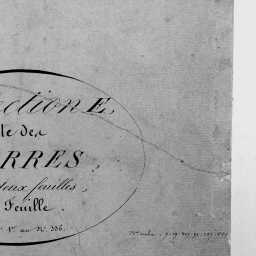 ction E,
te des
ERRES,
deux feuilles,
Feuille.
N° 1er au N° 336.